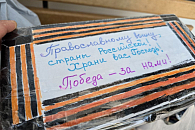 Православному воину
страны Российской!
Храни вас Господь!
Победа – за нами!